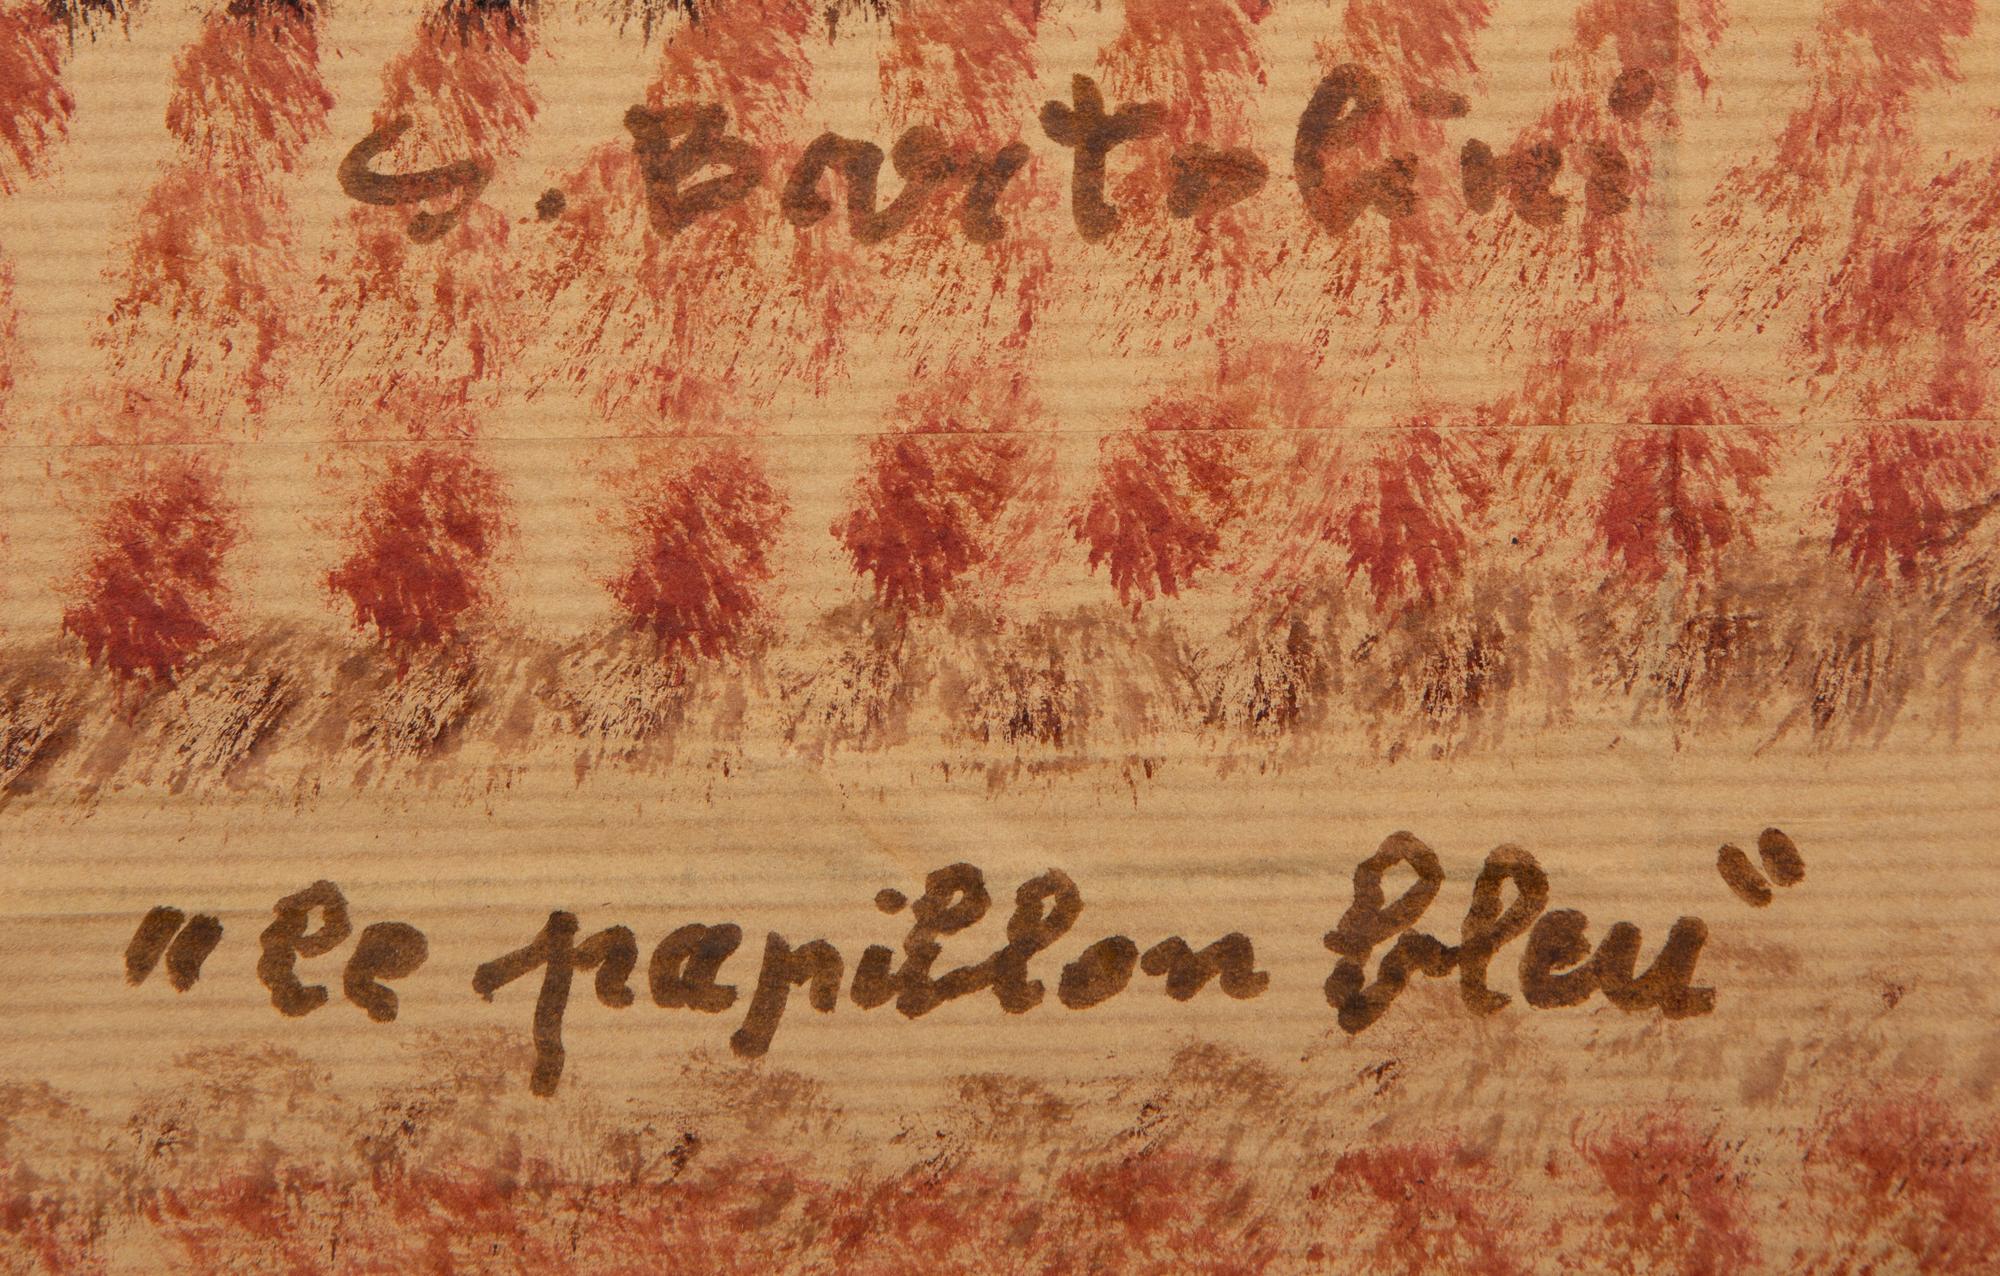 S. Bartolini
"le papillon bleu"